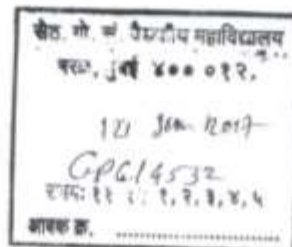 सेठ. गो. सुं. वैद्यकीय महाविद्यालय
परळ, मुंबई ४०० ०१२.
12 Jan 2017
GPG14532
१, २, ३, ४, ५
आवक क्र. ..................